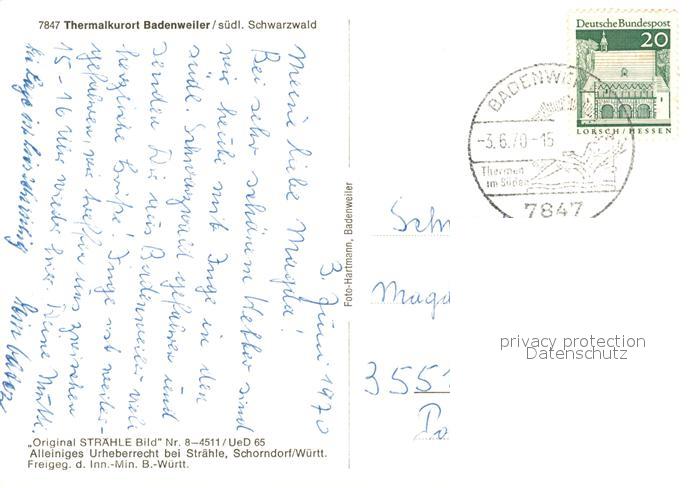 7847 Thermalkurort Badenweiler / südl. Schwarzwald
3. Juni 1970
Meine liebe Magda!
Bei sehr schönem Wetter sind
wir heute mit Inge in den
südl. Schwarzwald gefahren und
senden Dir aus Badenweiler viele
herzliche Grüße! Inge ist weiter-
gefahren, wir treffen uns zwischen
15-16 Uhr wieder hier. Deine Mutti.
Foto-Hartmann, Badenweiler
„Original STRÄHLE Bild" Nr. 8–4511 / UeD 65
Alleiniges Urheberrecht bei Strähle, Schorndorf/Württ.
Freigeg. d. Inn.-Min. B.-Württ.
Deutsche Bundespost
20
LORSCH / HESSEN
BADENWEI
-3.6.70-15
Thermen
im Süden
7847
Schw
Magda
355
privacy protection
Datenschutz